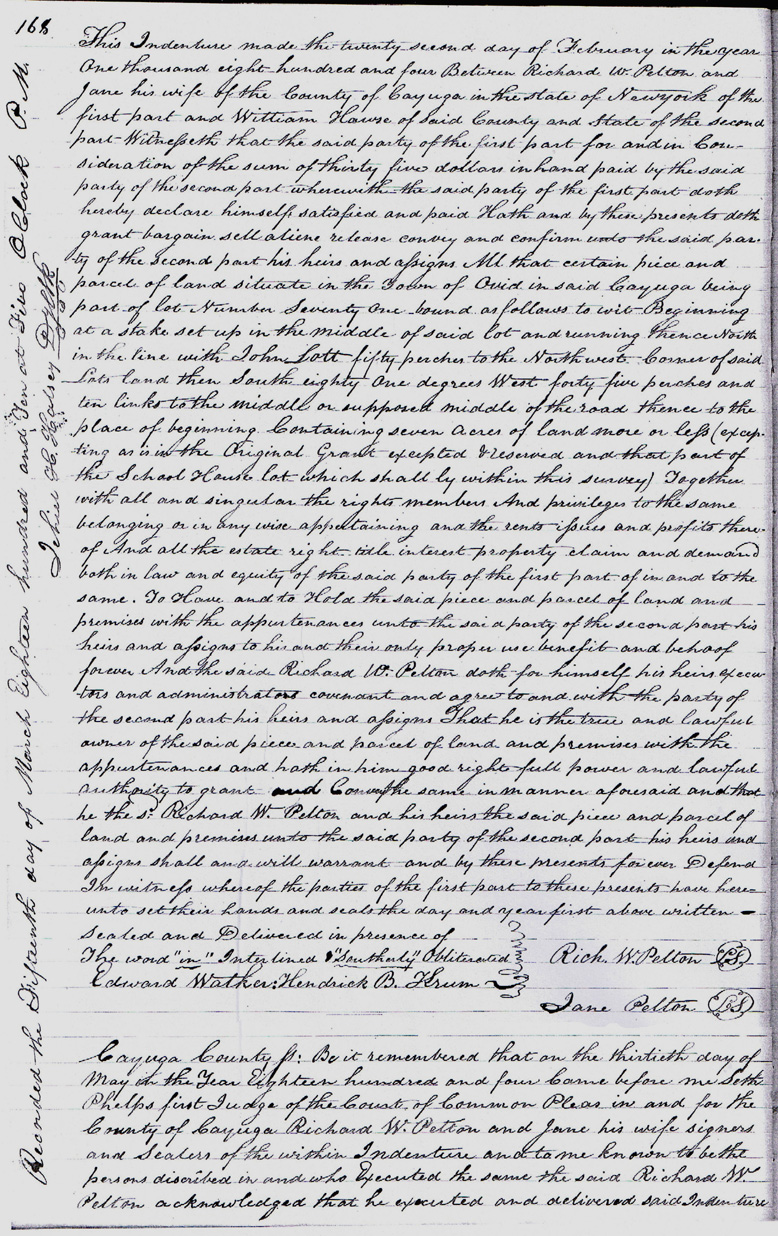 168
This Indenture made the twenty second day of February in the year
One thousand eight hundred and four Between Richard W. Pelton and
Jane his wife of the County of Cayuga in the state of Newyork of the
first part and William Hawse of Said County and State of the second
part Witnesseth that the said party of the first part for and in Con-
sideration of the sum of thirty five dollars in hand paid by the said
party of the second part wherewith the said party of the first part doth
hereby declare himself satisfied and paid Hath and by these presents doth
grant bargain sell aliene release convey and confirm unto the said par-
ty of the second part his heirs and assigns All that certain piece and
parcel of land situate in the Town of Ovid in said Cayuga being
part of lot Number Seventy One bound as follows to wit Beginning
at a stake set up in the middle of said lot and running thence North
in the line with John Lott fifty perches to the Northwest Corner of said
Lots land then South eighty One degrees West forty five perches and
ten links to the middle or supposed middle of the road thence to the
place of beginning Containing seven Acres of land more or less (excep-
ting as is in the Original Grant excepted & reserved and that part of
the School House lot which shall ly within this survey) Together
with all and singular the rights members And privileges to the same
belonging or in any wise appertaining and the rents issues and profits there-
of And all the estate right title interest property claim and demand
both in law and equity of the said party of the first part of in and to the
same. To Have and to Hold the said piece and parcel of land and
premises with the appurtenances unto the said party of the second part his
heirs and assigns to his and their only proper use benefit and behoof
forever And the said Richard W. Pelton doth for himself his heirs execu
tors and administrators covenant and agree to and with the party of
the second part his heirs and assigns That he is the true and lawful
owner of the said piece and parcel of land and premises with the
appurtenances and hath in him good right full power and lawful
authority to grant and Convey the same in manner aforesaid and that
he the sd. Richard W. Pelton and his heirs the said piece and parcel of
land and premises unto the said party of the second part his heirs and
assigns shall and will warrant and by these presents forever Defend
In witness whereof the parties of the first part to these presents have here=
unto set their hands and seals the day and year first above written
Sealed and Delivered in presence of
The word "in" Interlined & "Southerly" Obliterated
Edward Walker: Hendrick B. Krum
Rich. W. Pelton LS
Jane Pelton LS
Cayuga County ss: Be it remembered that on the thirtieth day of
May in the Year Eighteen hundred and four Came before me Seth
Phelps first Judge of the Court of Common Pleas in and for the
County of Cayuga Richard W. Pelton and Jane his wife signers
and Sealers of the within Indenture and to me known to be the
persons discribed in and who Executed the same the said Richard W.
Pelton acknowledged that he executed and delivered said Indenture
Recorded the Fifteenth day of March Eighteen hundred and Ten at Five OClock P. M.
Jehiel H. Halsey